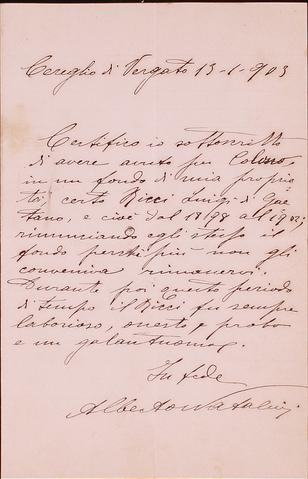 Cereglio di Vergato 13-1-903
Certifico io sottoscritto
di avere avuto per Colono
in un fondo di mia proprie
tà, certo Ricci Luigi di Gae
tano, e cioè dal 1898 al 1902,
rinunciando egli stesso il
fondo perchè più non gli
conveniva rimanervi.
Durante poi questo periodo
di tempo il Ricci fu sempre
laborioso, onesto e probo
e un galantuomo.
In fede
Alberto Natalini